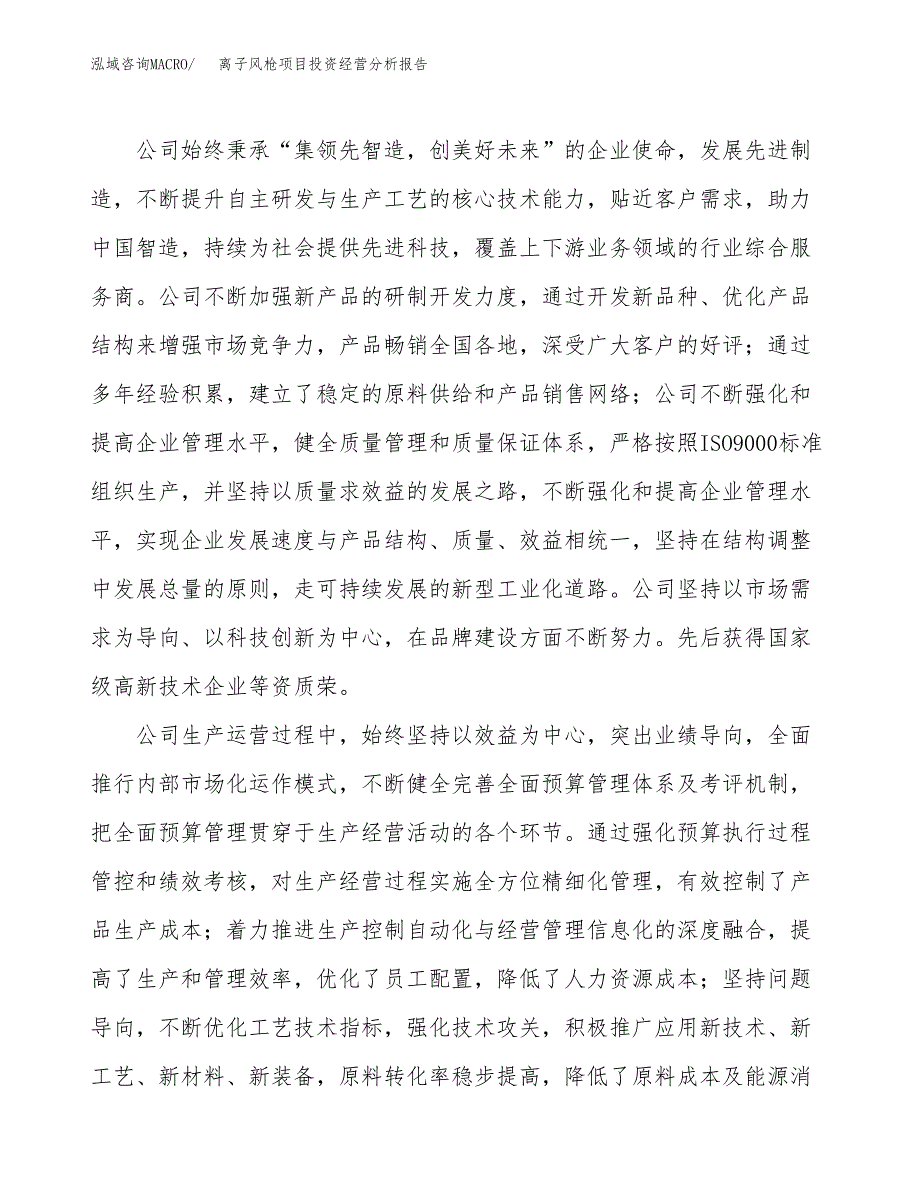 泓域咨询MACRO/ 离子风枪项目投资经营分析报告
公司始终秉承“集领先智造，创美好未来”的企业使命，发展先进制
造，不断提升自主研发与生产工艺的核心技术能力，贴近客户需求，助力
中国智造，持续为社会提供先进科技，覆盖上下游业务领域的行业综合服
务商。公司不断加强新产品的研制开发力度，通过开发新品种、优化产品
结构来增强市场竞争力，产品畅销全国各地，深受广大客户的好评；通过
多年经验积累，建立了稳定的原料供给和产品销售网络；公司不断强化和
提高企业管理水平，健全质量管理和质量保证体系，严格按照ISO9000标准
组织生产，并坚持以质量求效益的发展之路，不断强化和提高企业管理水
平，实现企业发展速度与产品结构、质量、效益相统一，坚持在结构调整
中发展总量的原则，走可持续发展的新型工业化道路。公司坚持以市场需
求为导向、以科技创新为中心，在品牌建设方面不断努力。先后获得国家
级高新技术企业等资质荣。
公司生产运营过程中，始终坚持以效益为中心，突出业绩导向，全面
推行内部市场化运作模式，不断健全完善全面预算管理体系及考评机制，
把全面预算管理贯穿于生产经营活动的各个环节。通过强化预算执行过程
管控和绩效考核，对生产经营过程实施全方位精细化管理，有效控制了产
品生产成本；着力推进生产控制自动化与经营管理信息化的深度融合，提
高了生产和管理效率，优化了员工配置，降低了人力资源成本；坚持问题
导向，不断优化工艺技术指标，强化技术攻关，积极推广应用新技术、新
工艺、新材料、新装备，原料转化率稳步提高，降低了原料成本及能源消